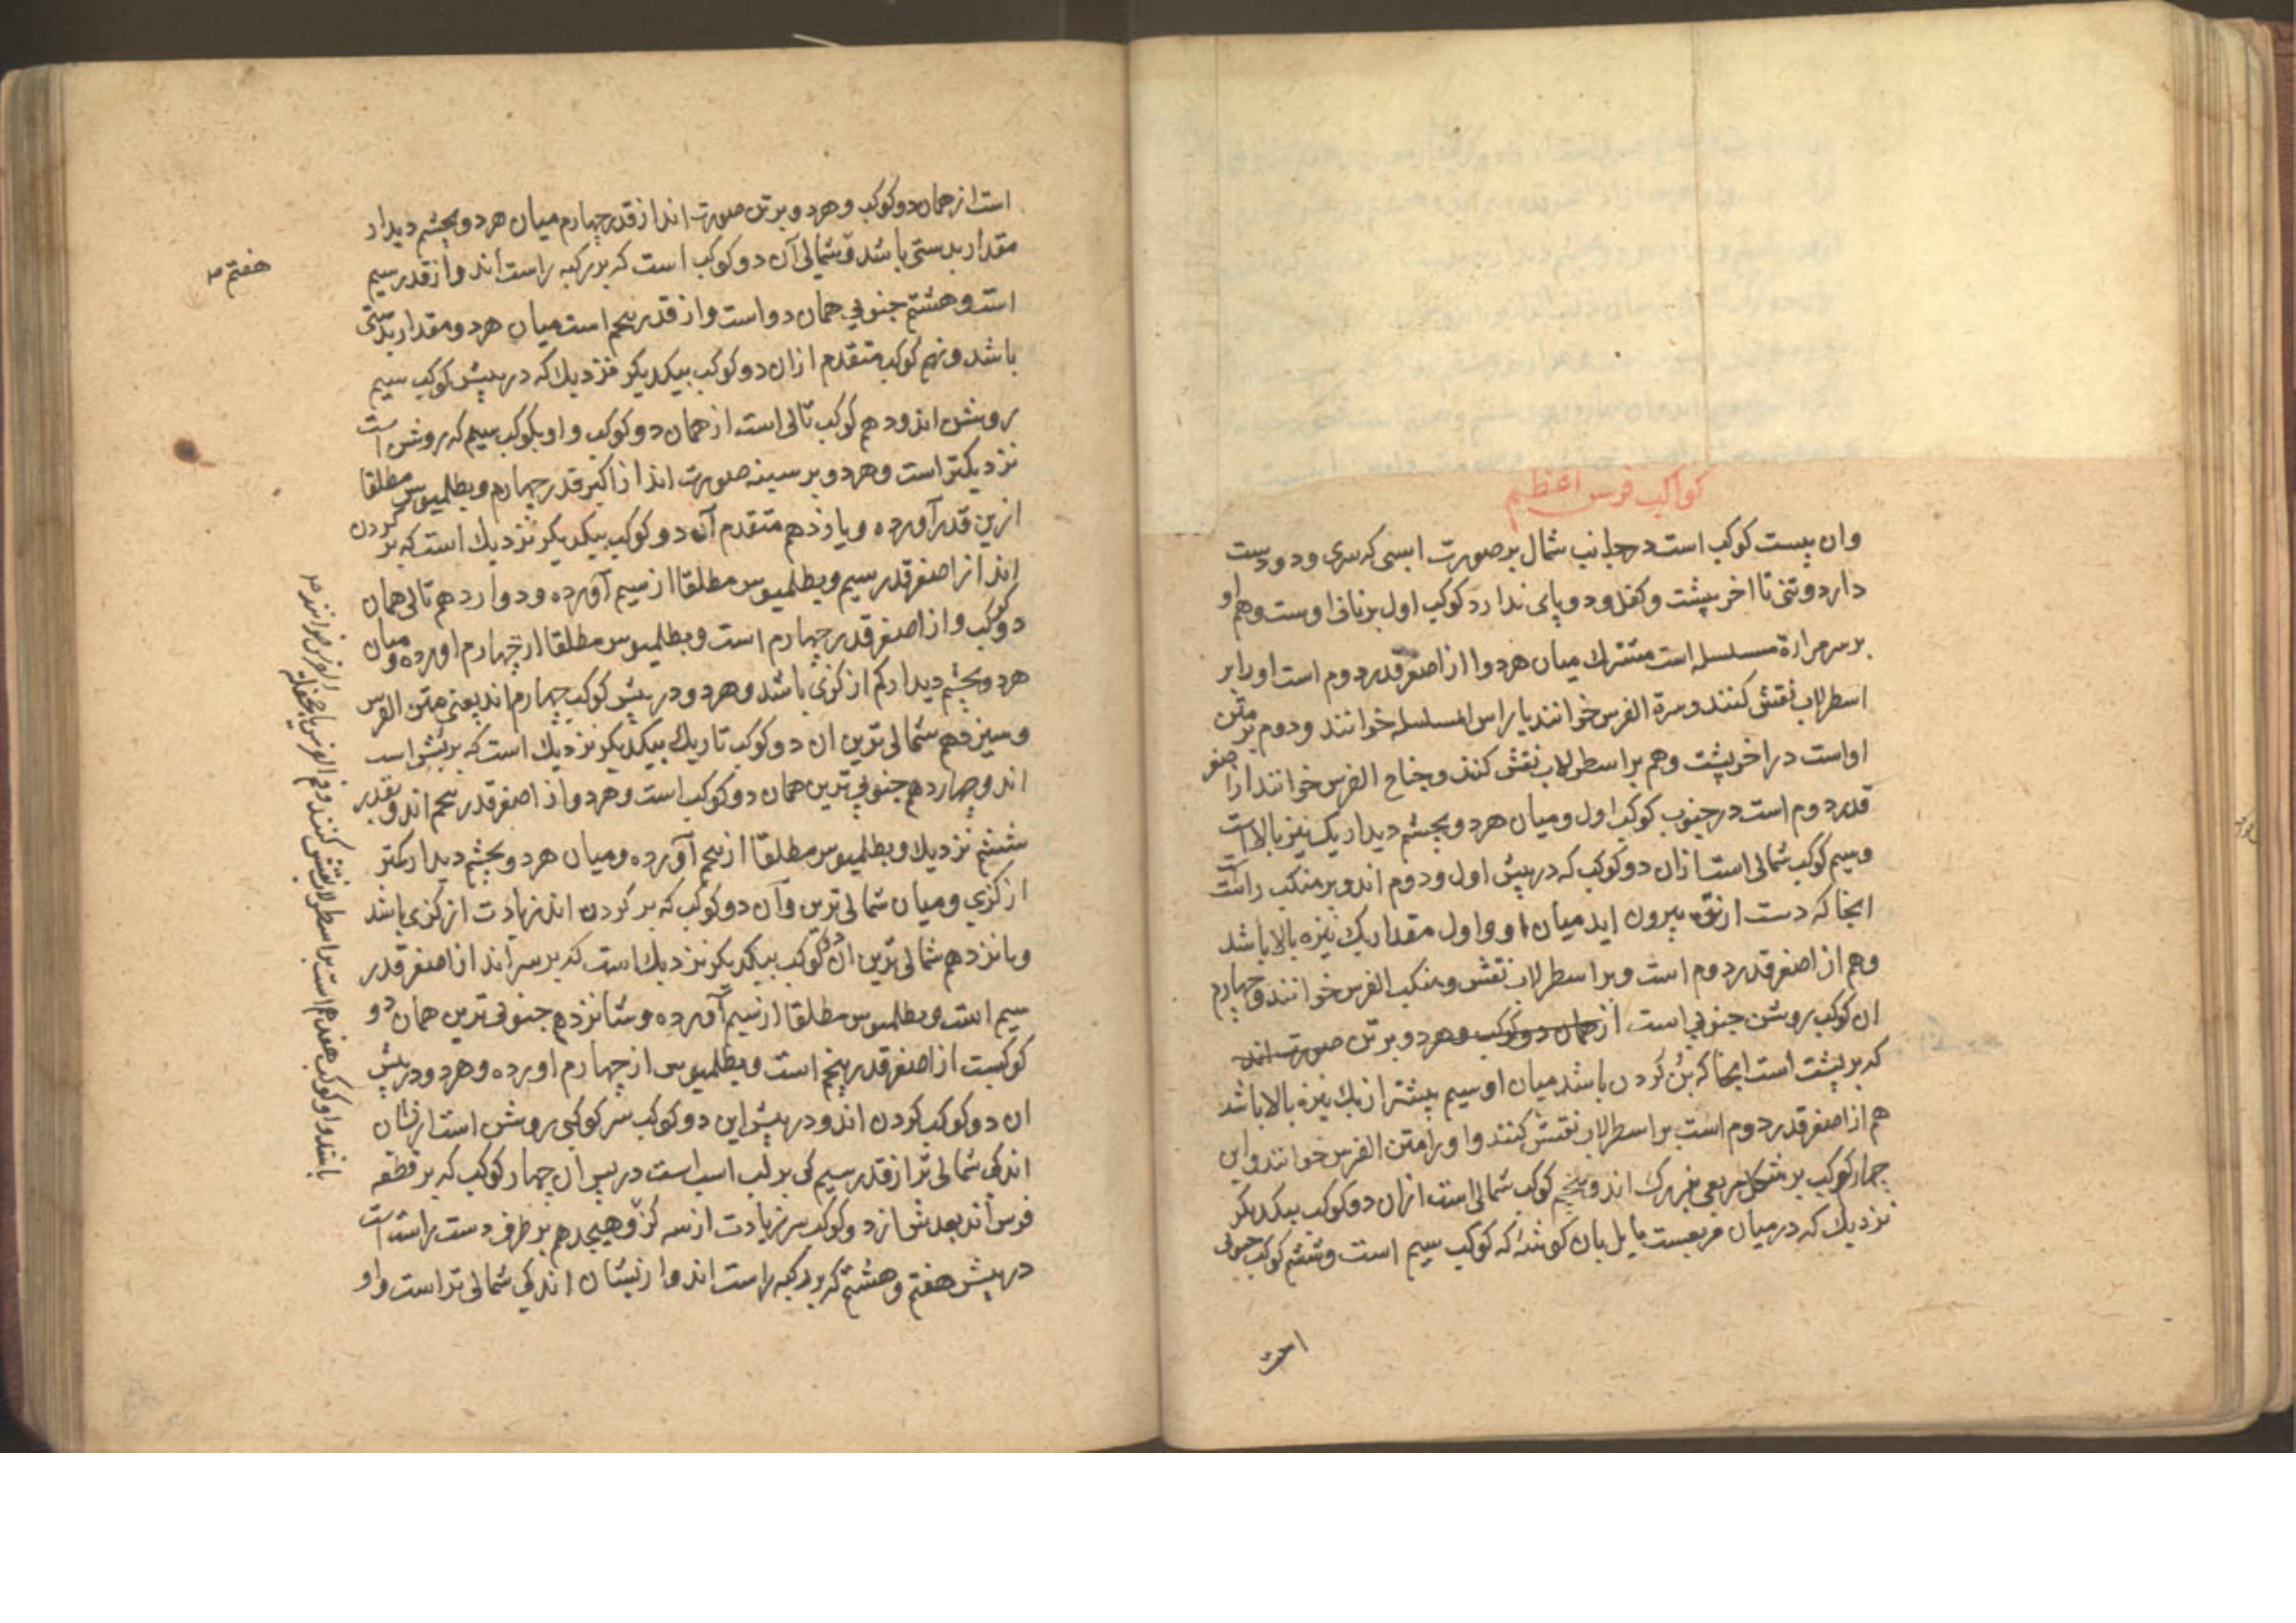 کواکب فرس اعظم
وان بیست کوکب است در جانب شمال بر صورت اسبی که سری و دو دست
دارد و تنی تا اخر پشت و کفل و دو پای ندارد کوکب اول بر ناف اوست و هم او
بر سر مراة مسلسله است مشترک میان هر دو از اصغر قدر دوم است او را بر
اسطرلاب نقش کنند و سرة الفرس خوانند یا راس المسلسله خوانند و دوم بر متن
او است در اخر پشت و هم بر اسطرلاب نقش کنند و جناح الفرس خوانند از اصغر
قدر دوم است در جنوب کوکب اول و میان هر دو بچشم دیدار یک نیزه بالا است
و سیم کوکب شمالی است ازان دو کوکب که در پیش اول و دوم اند و بر منکب راست
انجا که دست ازو بیرون اید میان او و اول مقدار یک نیزه بالا باشد
و هم از اصغر قدر دوم است و بر اسطرلاب نقش و منکب الفرس خوانند و چهارم
ان کوکب روشن جنوبی است از همان دو کوکب و هر دو بر تن صورت اند
که بر پشت است انجا که بن گردن باشد میان او سیم بیشتر از یک نیزه بالا باشد
هم از اصغر قدر دوم است بر اسطرلاب نقش کنند و او را متن الفرس خوانند و این
چهار کوکب بر شکل مربعی بزرک اند و پنجم کوکب شمالی است ازان دو کوکب بیکدیکر
نزدیک که در میان مربعست مایل بان کوشه که کوکب سیم است و ششم کوکب جنوبی
است
است از همان دو کوکب و هر دو بر تن صورت اند از قدر چهارم میان هر دو بچشم دیدار
مقدار بدستی باشد و شمالی آن دو کوکب است که بر رکبه راست اند و از قدر سیم
هفتم
است و هشتم جنوبی همان دو است و از قدر پنجم است میان هر دو مقدار بدستی
باشد و نهم کوکب متقدم ازان دو کوکب بیکدیکر نزدیک که در پیش کوکب سیم
روشن اند و دهم کوکب تالی است از همان دو کوکب و او بکوکب سیم که روشن است
نزدیکتر است و هر دو بر سینه صورت اند از اکبر قدر چهارم و بطلمیوس مطلقا
ازین قدر آورده و یازدهم متقدم آن دو کوکب بیکدیکر نزدیک است که بر گردن
اند از اصغر قدر سیم و بطلمیوس مطلقا از سیم آورده و دوازدهم تالی همان
دو کوکب و از اصغر قدر چهارم است و بطلمیوس مطلقا از چهارم اورده و میان
هر دو بچشم دیدار کم از کزی باشد و هر دو در پیش کوکب چهارم اند یعنی متن الفرس
و سیزدهم شمالی ترین ان دو کوکب تاریک بیکدیکر نزدیک است که بر بش اسب
اند و چهاردهم جنوبی ترین همان دو کوکب است و هر دو از اصغر قدر پنجم اند و بقدر
ششم نزدیک و بطلمیوس مطلقا از پنجم آورده و میان هر دو بچشم دیدار کمتر
از کزی و میان شمالی ترین و آن دو کوکب که بر گردن اند زیادت از کزی باشد
و پانزدهم شمالی ترین ان دو کوکب بیکدیکر نزدیک است که بر سر اند از اصغر قدر
سیم است و بطلمیوس مطلقا از سیم آورده و شانزدهم جنوبی ترین همان دو
کوکبست از اصغر قدر پنجم است و بطلمیوس از چهارم اورده و هر دو در پیش
ان دو کوکب کردن اند و در پیش این دو کوکب سر کوکبی روشن است ازیشان
اندکی شمالی تر از قدر سیم کی بر لب اسب است در پس ان چهار کوکب که بر قطعه
فرس اند بعدش از دو کوکب سر زیادت از سه کز و هیجدهم بر طرف دست راست است
در پیش هفتم و هشتم که بر رکبه راست اند و ازیشان اندکی شمالی تر است و او
باشد و او کوکب هفدهم است بر اسطرلاب نقش کنند و فم الفرس یا جحفلة الفرس خوانند